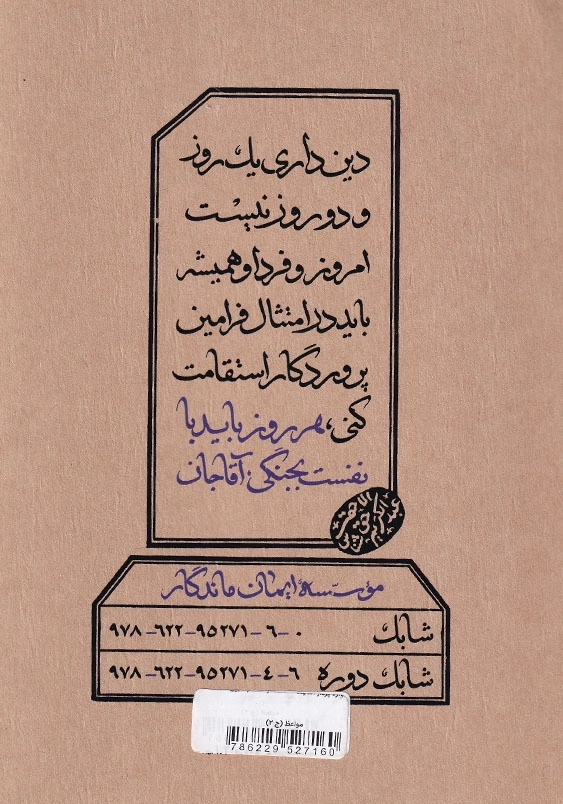 دین‌داری یك روز
و دو روز نیست
امروز و فردا و همیشه
باید در امتثال فرامین
پروردگار استقامت
کنی، هر روز باید با
نفست بجنگی آقاجان
مؤسسهٔ ایمان ماندگار
شابك ۹۷۸-۶۲۲-۹۵۲۷۱-۶-۰
شابك دوره ۹۷۸-۶۲۲-۹۵۲۷۱-۴-۶
مواعظ (ج ۲)
786229 527160